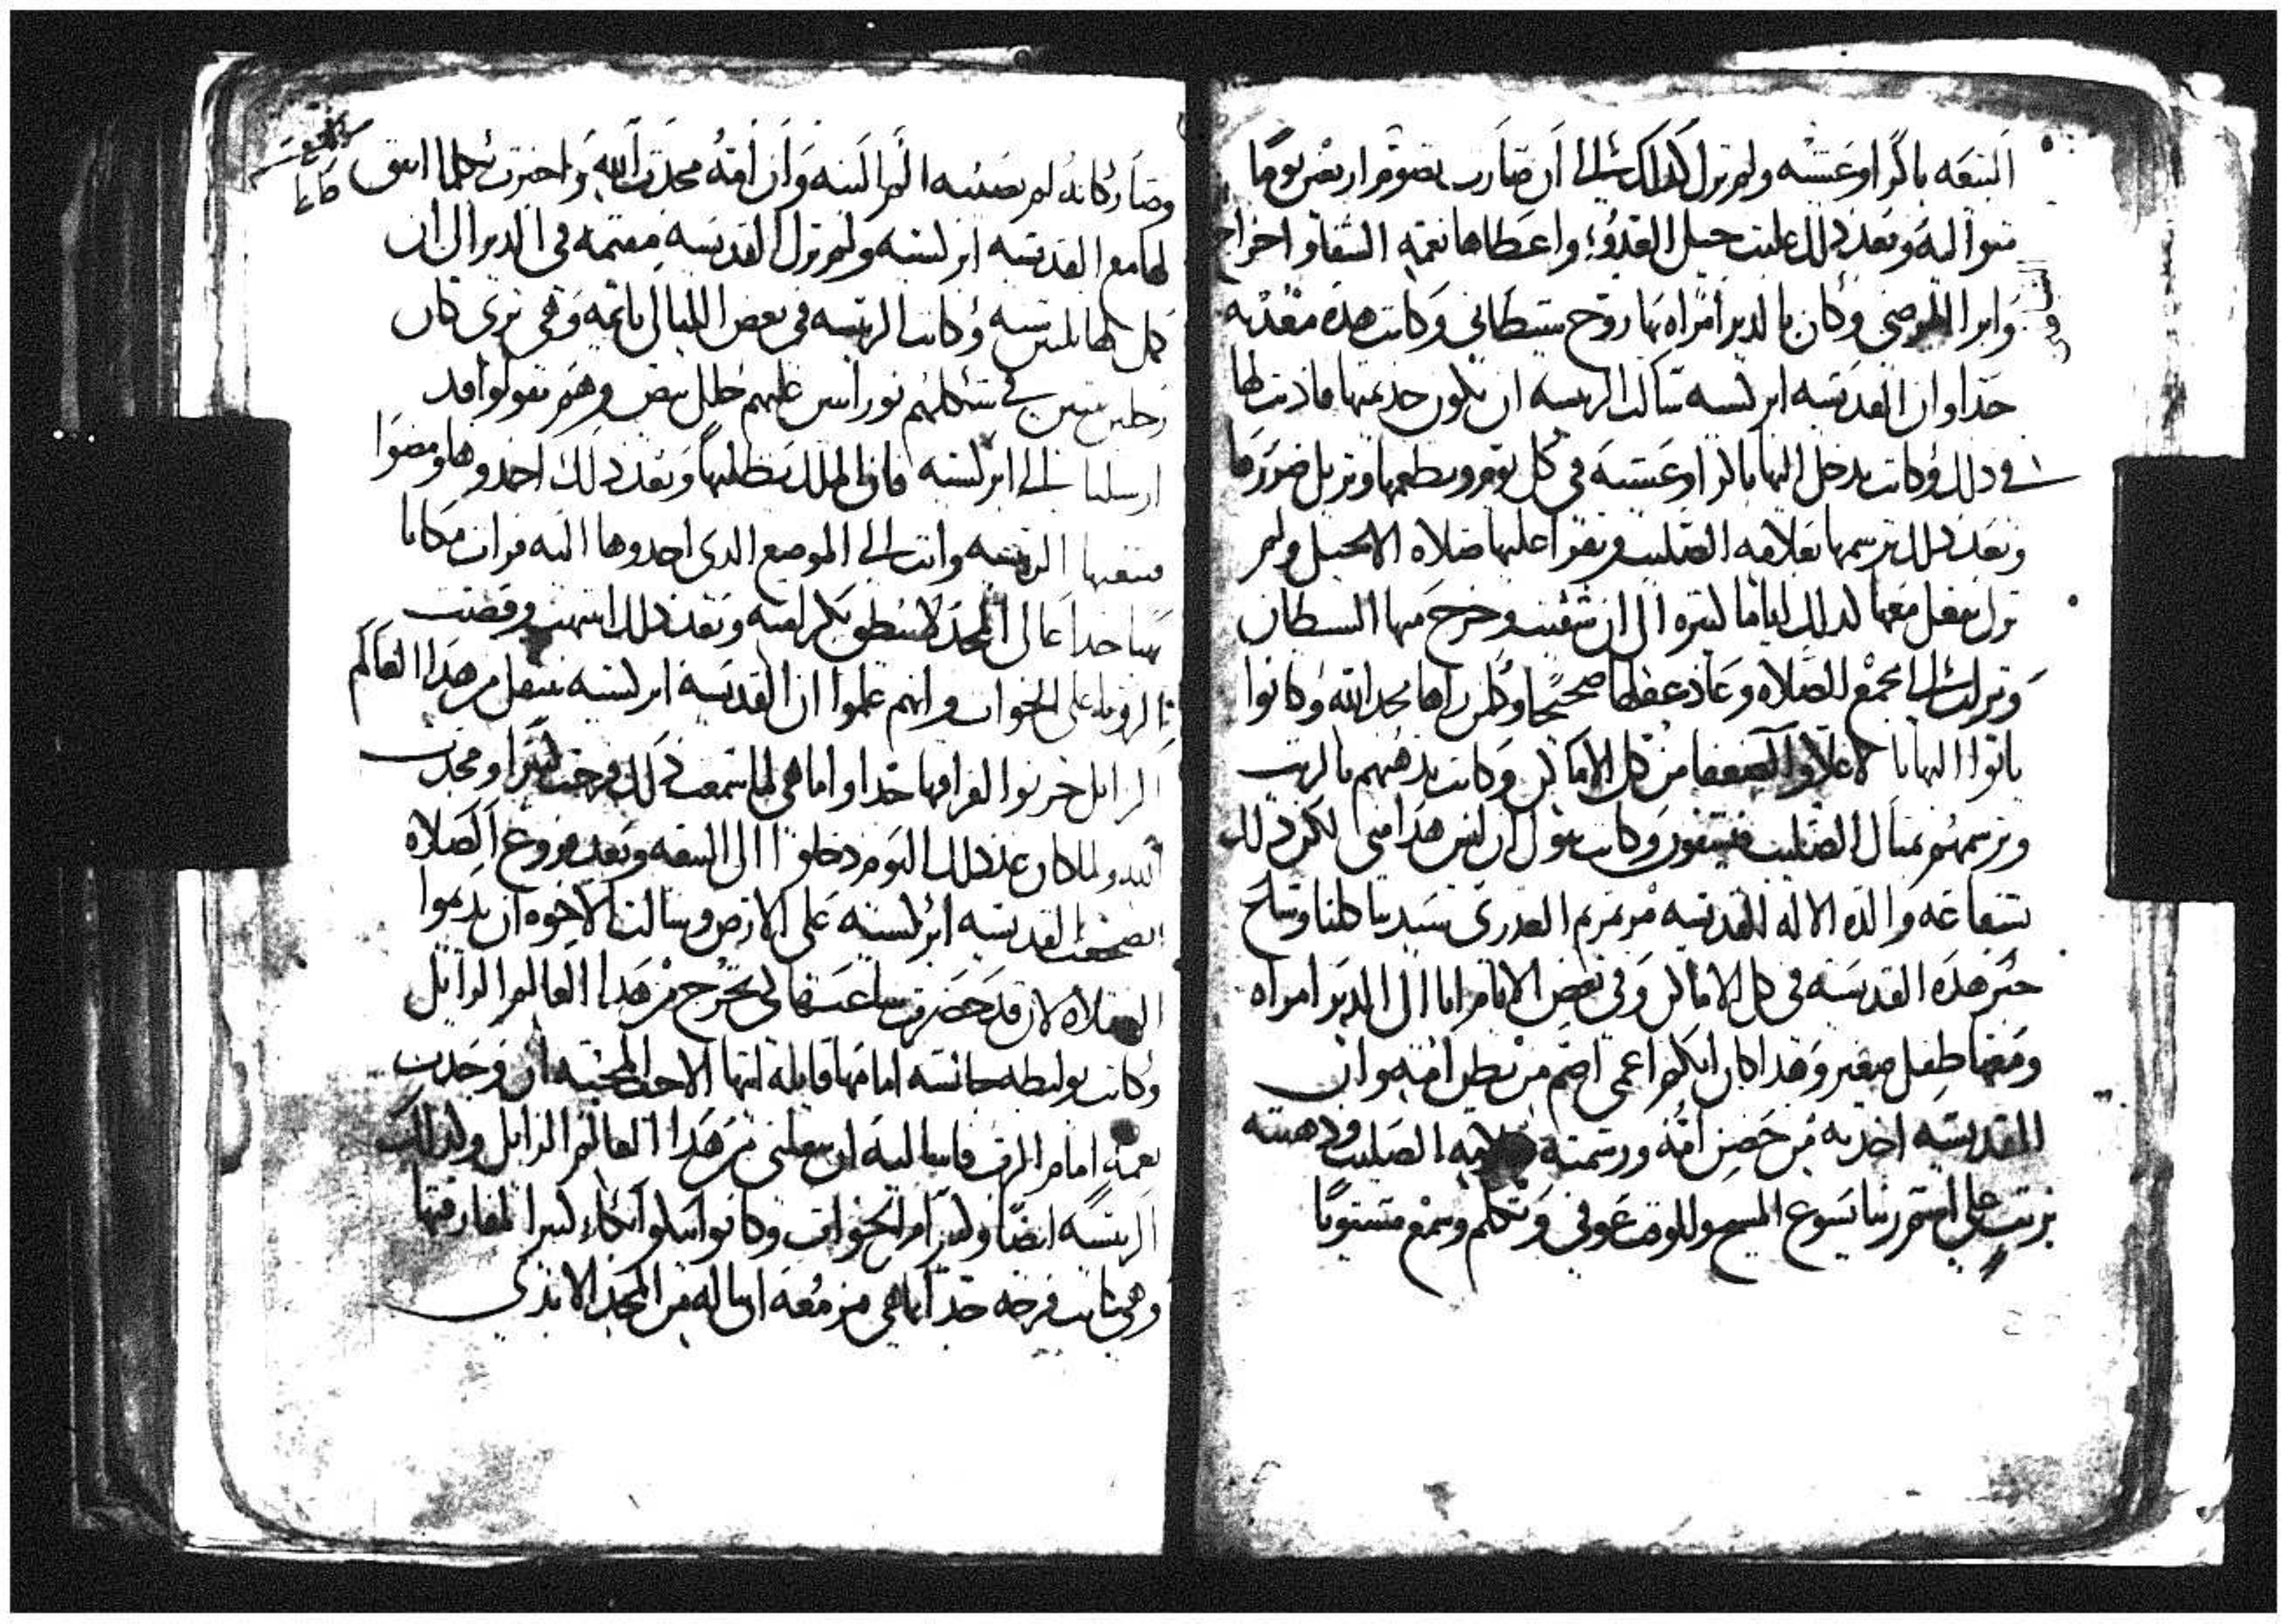 البيعه باكرا وعشيه ولم تزل كذلك الى ان صارت تصوم اربعين يوما
سوا ليه وبعد ذلك علت جبل القدوس واعطاها نعمه الشفا واخراج
وابرا المرضي وكان بالدير امراه بها روح شيطاني وكانت هده معدبه
جدا وان القديسه ابرلسيه سالت الريسه ان تكون خدمتها فادنت لها
في دلك وكانت تدخل اليها باكرا وعشيه في كل يوم وتطعمها وتزيل ضررها
وبعد دلك ترسمها بعلامه الصليب وتقرا عليها صلاه الانجيل ولم
تزل تفعل معها كدلك اياما كتيره الى ان شفيت وخرج منها الشيطان
ونزلت الى مجمع الصلاه وعاد عقلها صحيحا وكلمن راها مجد الله وكانوا
ياتوا اليها باالاعلاو الضعفا من كل الاماكن وكانت تدهنهم بالزيت
وترسمهم بمتال الصليب فيشفون وكانت تقول ان ليس هدا مني لكن دلك
بشفاعة والدة الاله القديسه مرتمريم العدرى سيدتنا كلنا وشاع
خبر هده القديسه في كل الاماكن وفي بعض الايام اتا الى الدير امراه
ومعها طفل صغير وهدا كان ابكم اعمي اصم من بطن امه وان
القديسه اخدته من حضن امه ورسمته بعلامه الصليب ودهنته
بزيت على اسم ربنا يسوع المسيح وللوقت عوفي وتكلم وسمع مستويا
وصار كانه لم يصيبه الم البته وان امه مجدت الله واخبرت بكلما اتفق
لها مع القديسه ابرلسيه ولم تزل القديسه مقيمه في الدير الى ان
كمل لها تلتين سنه وكانت الريسه في بعض الليالي نايمه وهي ترى كان
رجلين في شكلهم نورانين عليهم حلل بيض وهم يقولوا قد
ارسلنا الى ابرلسيه فان الملك يطلبها وبعد دلك اخدوها ومضوا
فتبعتها الريسه واتت الى الموضع الدي اخدوها اليه فرات مكانا
بهيا جدا عالى المجد لا ينطق بكرامته وبعد دلك انتبهت وقصت
الرويا على الخوات وانهم علموا ان القديسة ابرلسيه تنتقل من هدا العالم
الزايل حزنوا لفراقها جدا واما هي لما سمعت دلك فرحت كتيرا ومجدت
الله ولما كان عند دلك اليوم دخلوا الى البيعه وبعد فروغ الصلاه
القديسه ابرلسيه على الارض وسالت الاخوه ان يديموا
الصلاه لان قد حضرت ساعتها لكي تخرج من هدا العالم الزايل
وكانت جالسه امامها قايله ايتها الاخت المحبه ان وجدت
نعمه امام الرب فاسالي اليه ان ينقلني من هدا العالم الزايل وكدلك
الريسه ايضا وكتير من الخوات وكانوا يبكوا بكاء كبيرا لمفارقتها
وهي كانت فرحه جدا بما هي مزمعه ان تناله من المجد الابدي